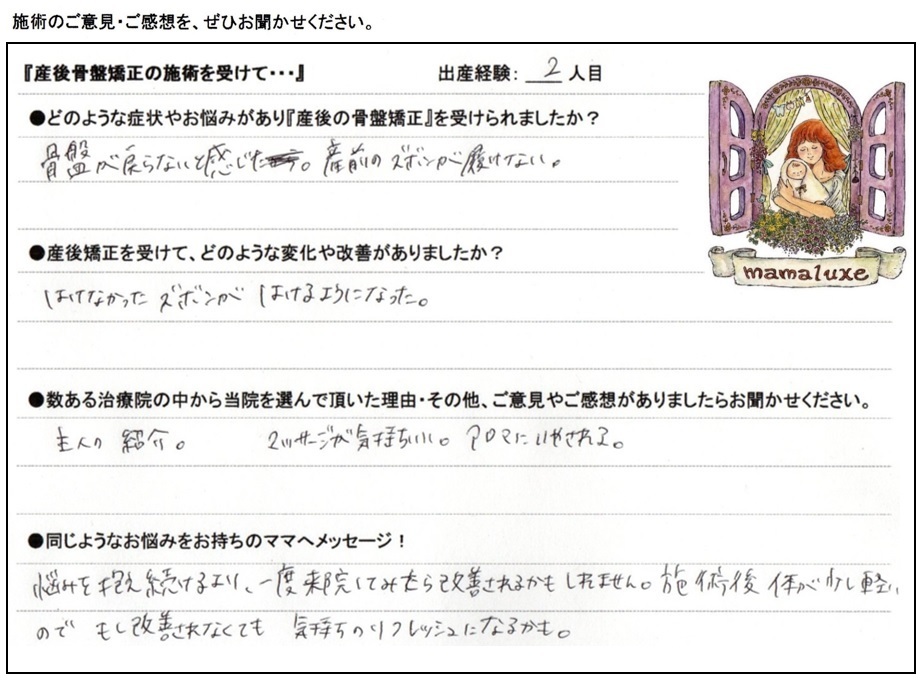 施術のご意見・ご感想を、ぜひお聞かせください。
『産後骨盤矯正の施術を受けて・・・』 出産経験： 2 人目
●どのような症状やお悩みがあり『産後の骨盤矯正』を受けられましたか？
骨盤が戻らないと感じた。産前のズボンが履けない。
●産後矯正を受けて、どのような変化や改善がありましたか？
はけなかったズボンが はけるようになった。
mamaluxe
●数ある治療院の中から当院を選んで頂いた理由・その他、ご意見やご感想がありましたらお聞かせください。
主人の紹介。 マッサージが気持ちいい。アロマにいやされる。
●同じようなお悩みをお持ちのママへメッセージ！
悩みを抱え続けるより、一度来院してみたら改善されるかもしれません。施術後 体が少し軽い
ので もし改善されなくても 気持ちのリフレッシュになるかも。